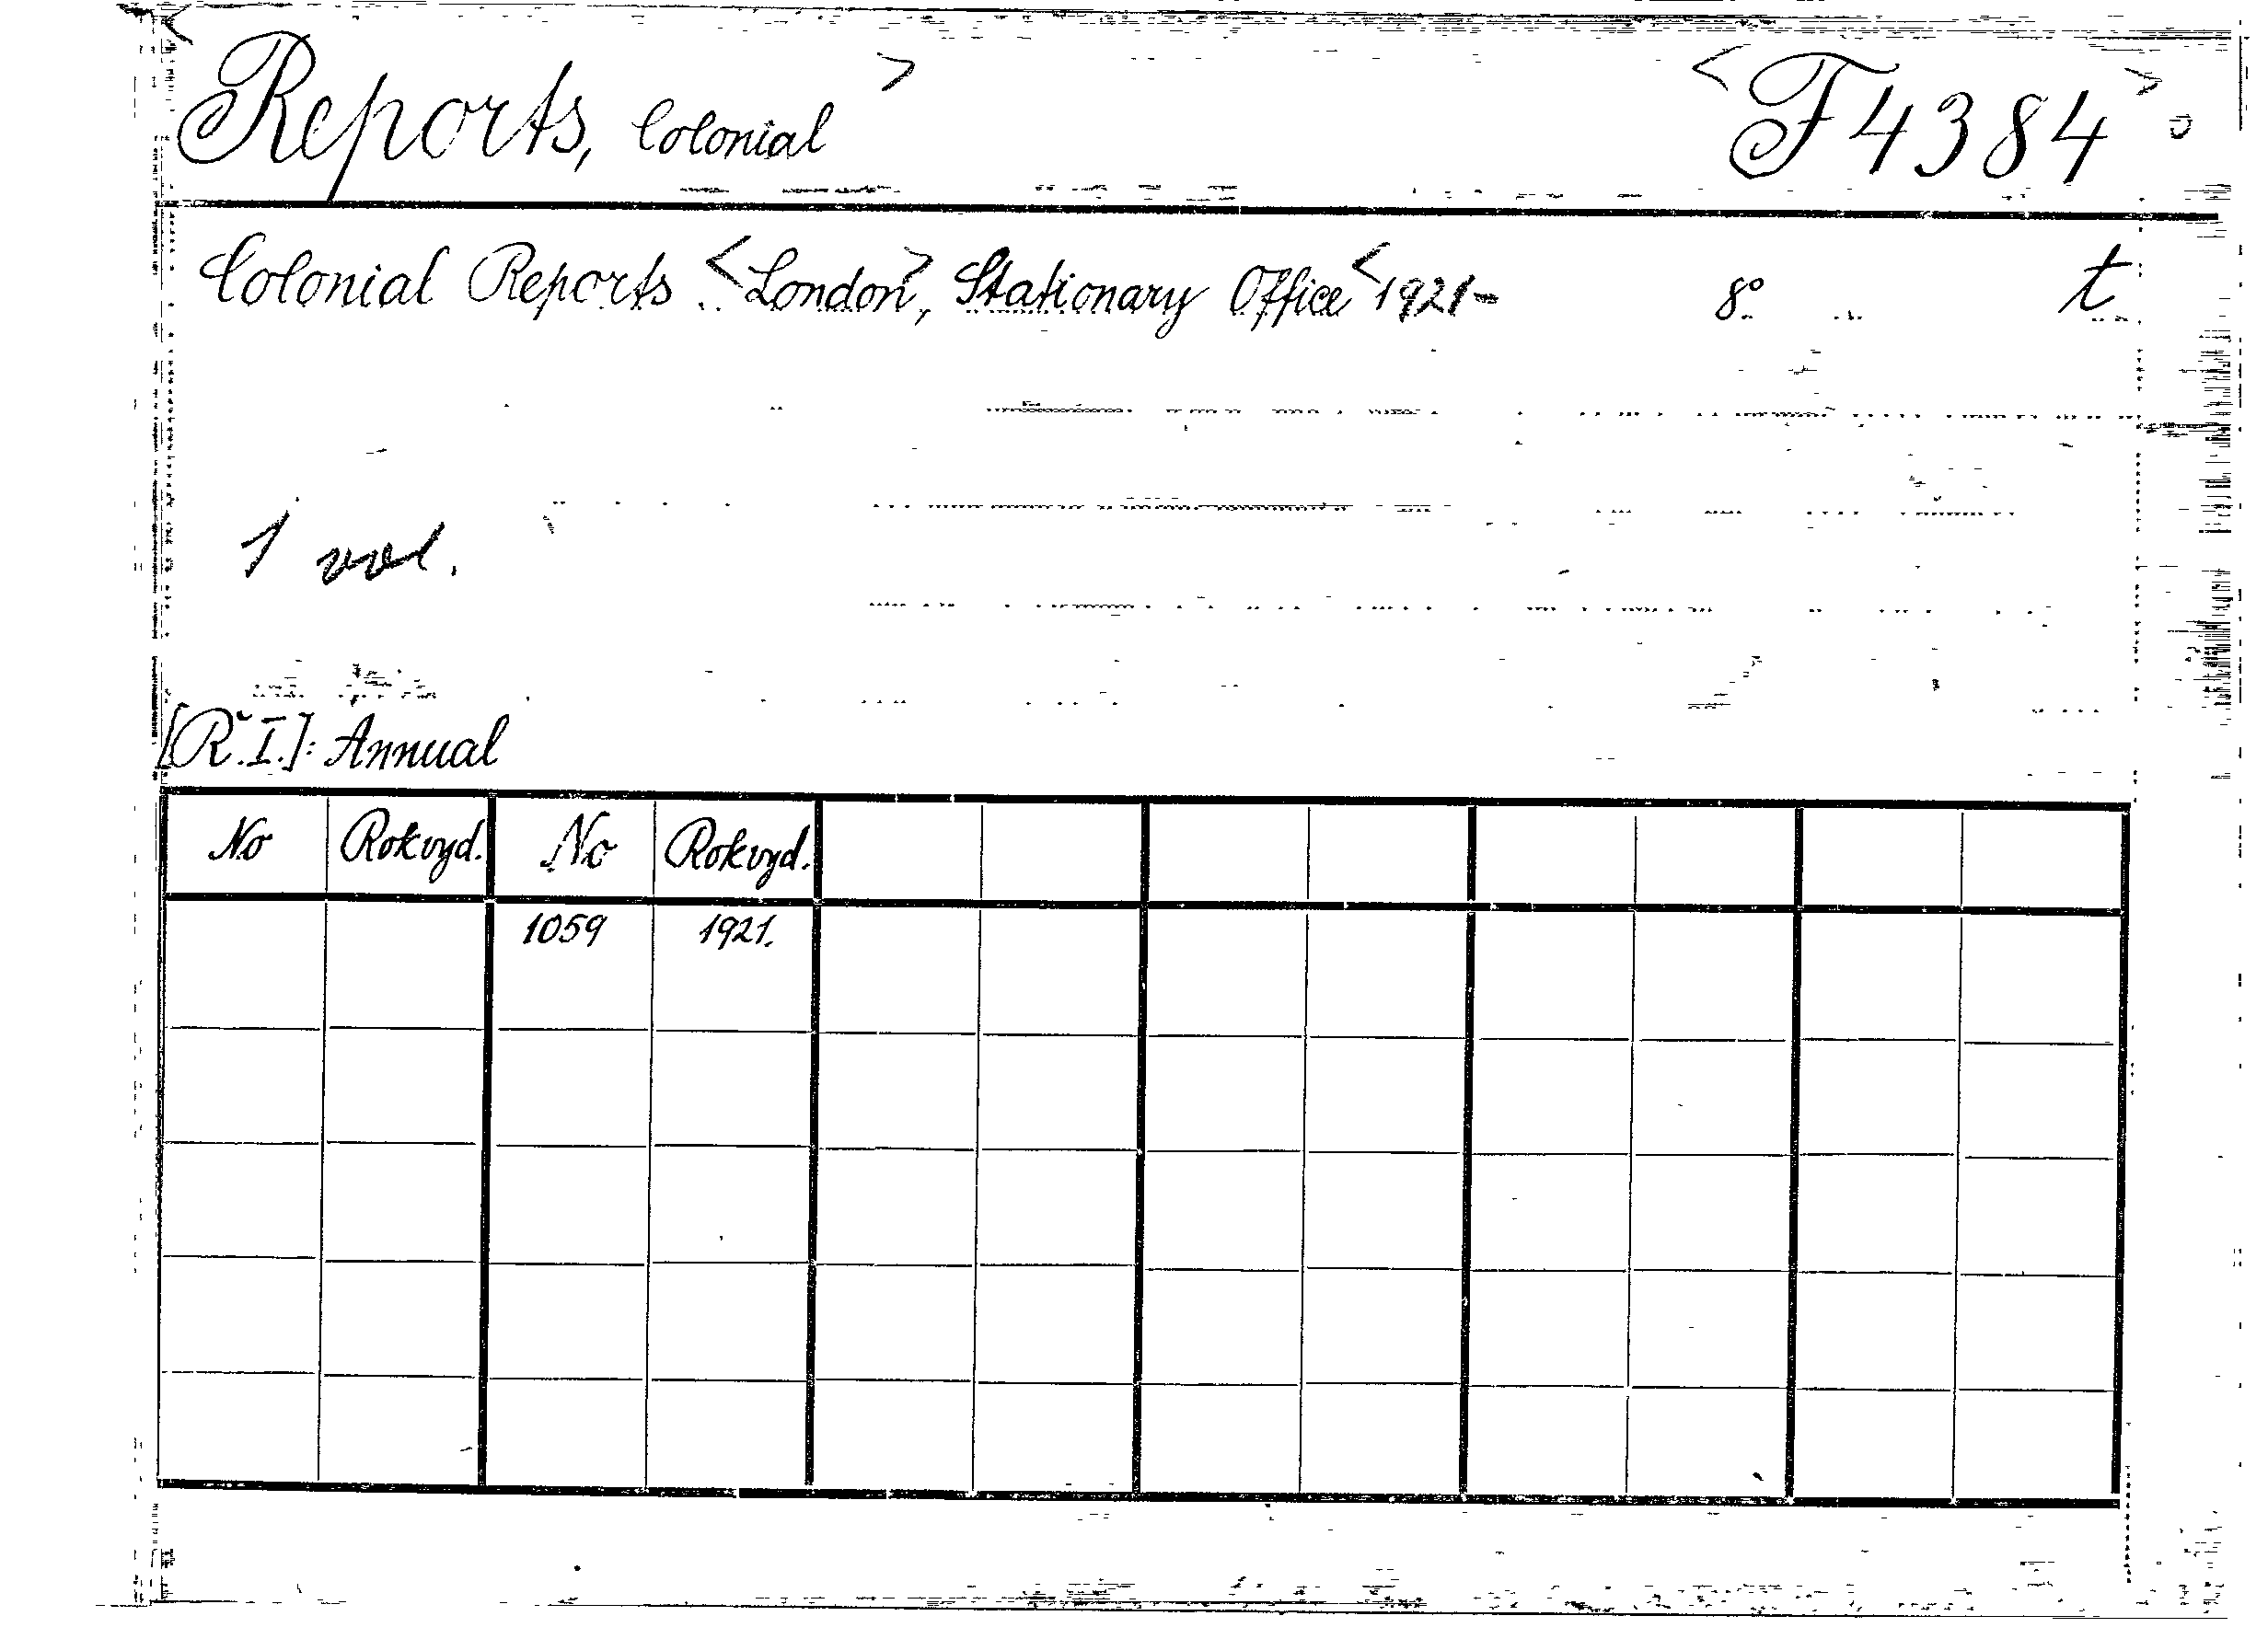 <Reports, Colonial> <F 4384>
Colonial Reports. <London>, Stationary Office <1921- 8° t
1 vol.
[Ř.I.]: Annual
No Rok vyd. No Rok vyd.
1059 1921.